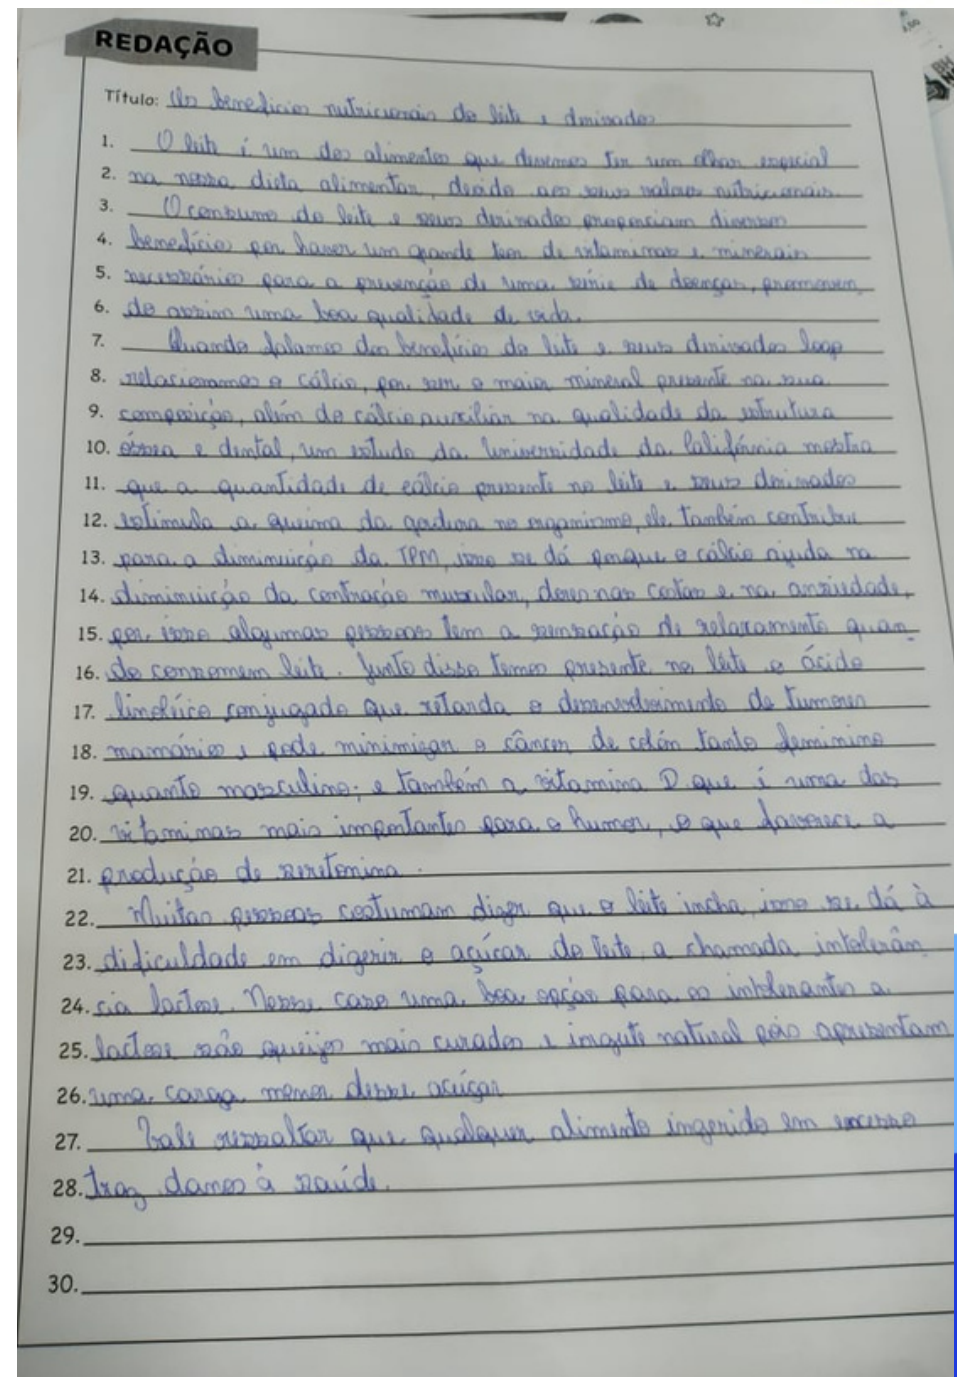 REDAÇÃO
Título: Os beneficios nutricionais do leite e derivados
1. O leite é um dos alimentos que devemos ter um olhar especial
2. na nossa dieta alimentar, devido aos seus valores nutricionais.
3. O consumo do leite e seus derivados propenciam diversos
4. benefícios por haver um grande teor de vitaminas e minerais
5. necessários para a prevenção de uma série de doenças, promoven
6. do assim uma boa qualidade de vida.
7. Quando falamos dos benefícios do leite e seus derivados logo
8. relacionamos o cálcio, por ser o maior mineral presente na sua
9. composição, além do cálcio auxiliar na qualidade da estrutura
10. óssea e dental, um estudo da Universidade da Califórnia mostra
11. que a quantidade de cálcio presente no leite e seus derivados
12. estimula a queima da gordura no organismo, ele também contribui
13. para a diminuição da TPM, isso se dá porque o cálcio ajuda na
14. diminuição da contração muscular, dores nas costas e na ansiedade,
15. por isso algumas pessoas tem a sensação de relaxamento quan
16. do consomem leite. Junto disso temos presente no leite o ácido
17. linoléico conjugado que retarda o desenvolvimento de tumores
18. mamários e pode minimizar o câncer de colón tanto feminino
19. quanto masculino; e também a vitamina D que é uma das
20. vitaminas mais importantes para o humor, o que favorece a
21. produção de serotonina.
22. Muitas pessoas costumam dizer que o leite incha, isso se dá à
23. dificuldade em digerir o açúcar do leite, a chamada intolerân
24. cia lactose. Nesse caso uma boa opção para os intolerantes a
25. lactose são queijos mais curados e iogute natural pois apresentam
26. uma carga menor desse acúçar
27. Vale ressaltar que qualquer alimento ingerido em excesso
28. traz danos à saúde.
29.
30.